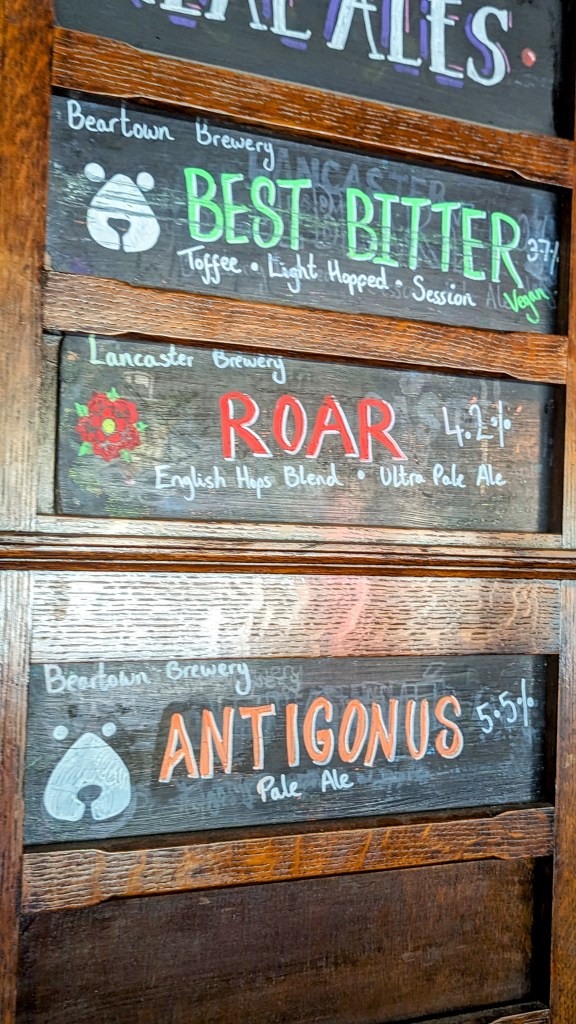 REAL ALES
Beartown Brewery
BEST BITTER 3.7%
Toffee • Light Hopped • Session
Vegan
Lancaster Brewery
ROAR 4.2%
English Hops Blend • Ultra Pale Ale
Beartown Brewery
ANTIGONUS 5.5%
Pale Ale